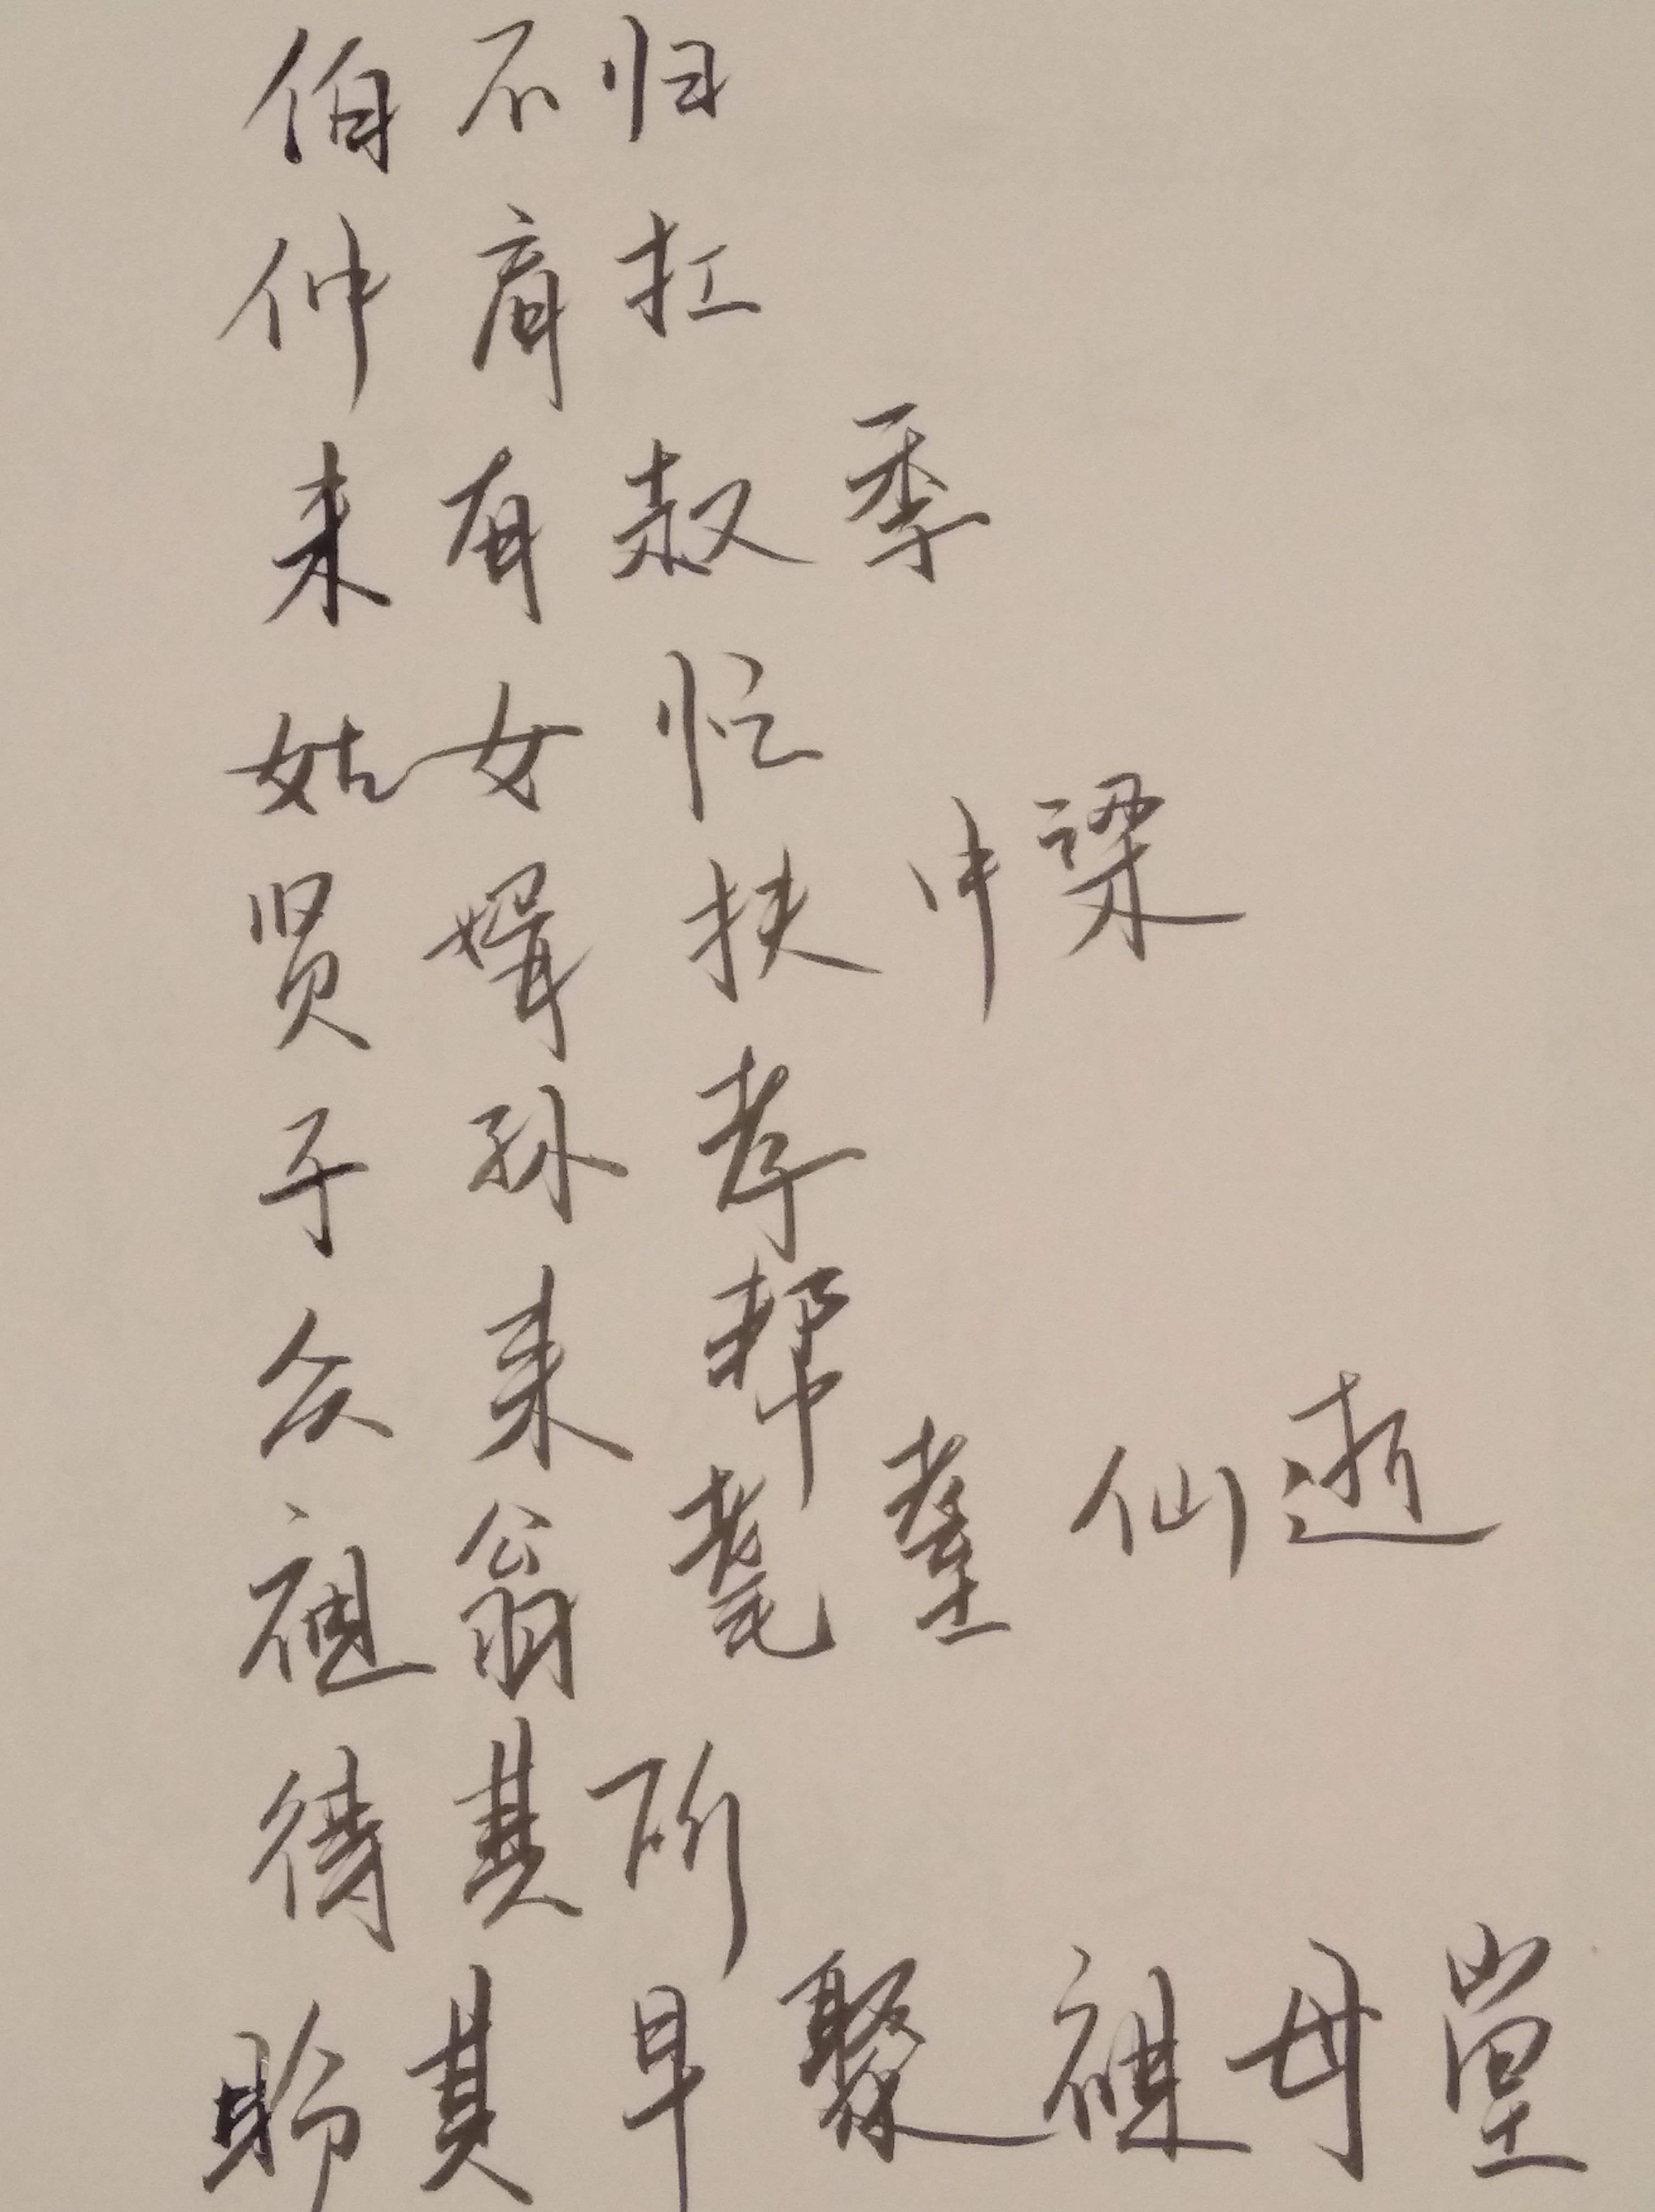 伯不归
仲肩扛
来有叔季
姑女忙
贤婿扶中梁
子孙孝
众来帮
祖翁耄耋仙逝
待其所
盼其早聚祖母堂